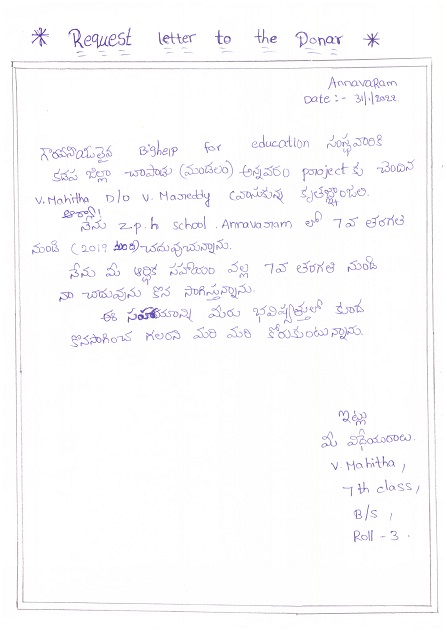 * Request letter to the Donar *
Annavaram
Date :- 31/1/2022.
గౌరవనీయులైన Bighelp for education సంస్థవారికి
కడప జిల్లా చాపాడు (మండలం) అన్నవరం project కు చెందిన
V. Mahitha D/O V. Mareddy వ్రాసుకున్న కృతజ్ఞాంజలి.
నేను Z.P.h School. Annavaram లో 7వ తరగతి
నుండి (2019 చదువుచున్నాను.
నేను మీ ఆర్థిక సహాయం వల్ల 7వ తరగతి నుండి
నా చదువును కొన సాగిస్తున్నాను.
ఈ సహాయాన్ని మీరు భవిష్యత్తులో కూడ
కొనసాగించ గలరని మరి మరి కోరుకుంటున్నాను.
ఇట్లు
మీ విధేయురాలు.
V. Mahitha,
7th class,
B/S,
Roll - 3.